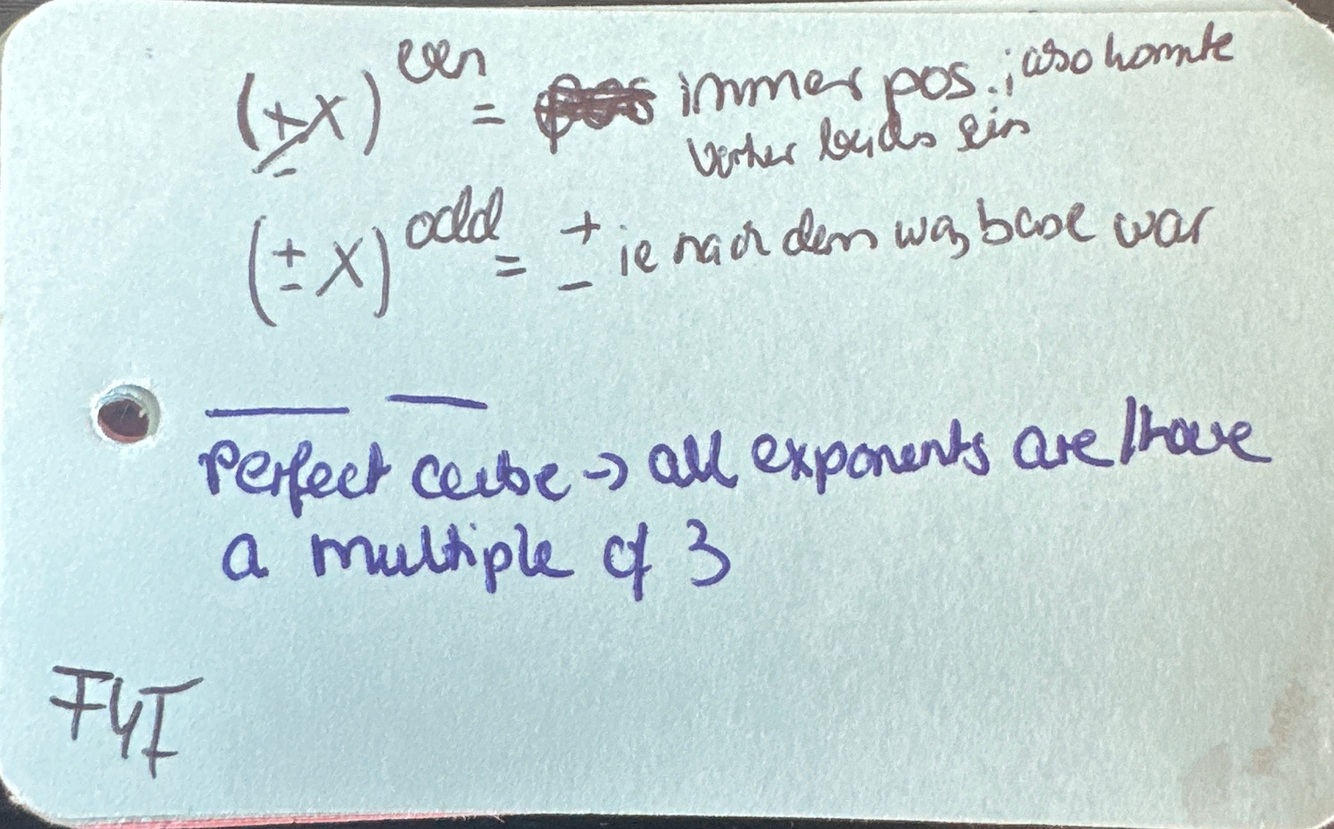 (±x)^even = immer pos.; also konnte
vorher beides sein
(±x)^odd = ± je nach dem was base war
Perfect cube → all exponents are/have
a multiple of 3
FYI